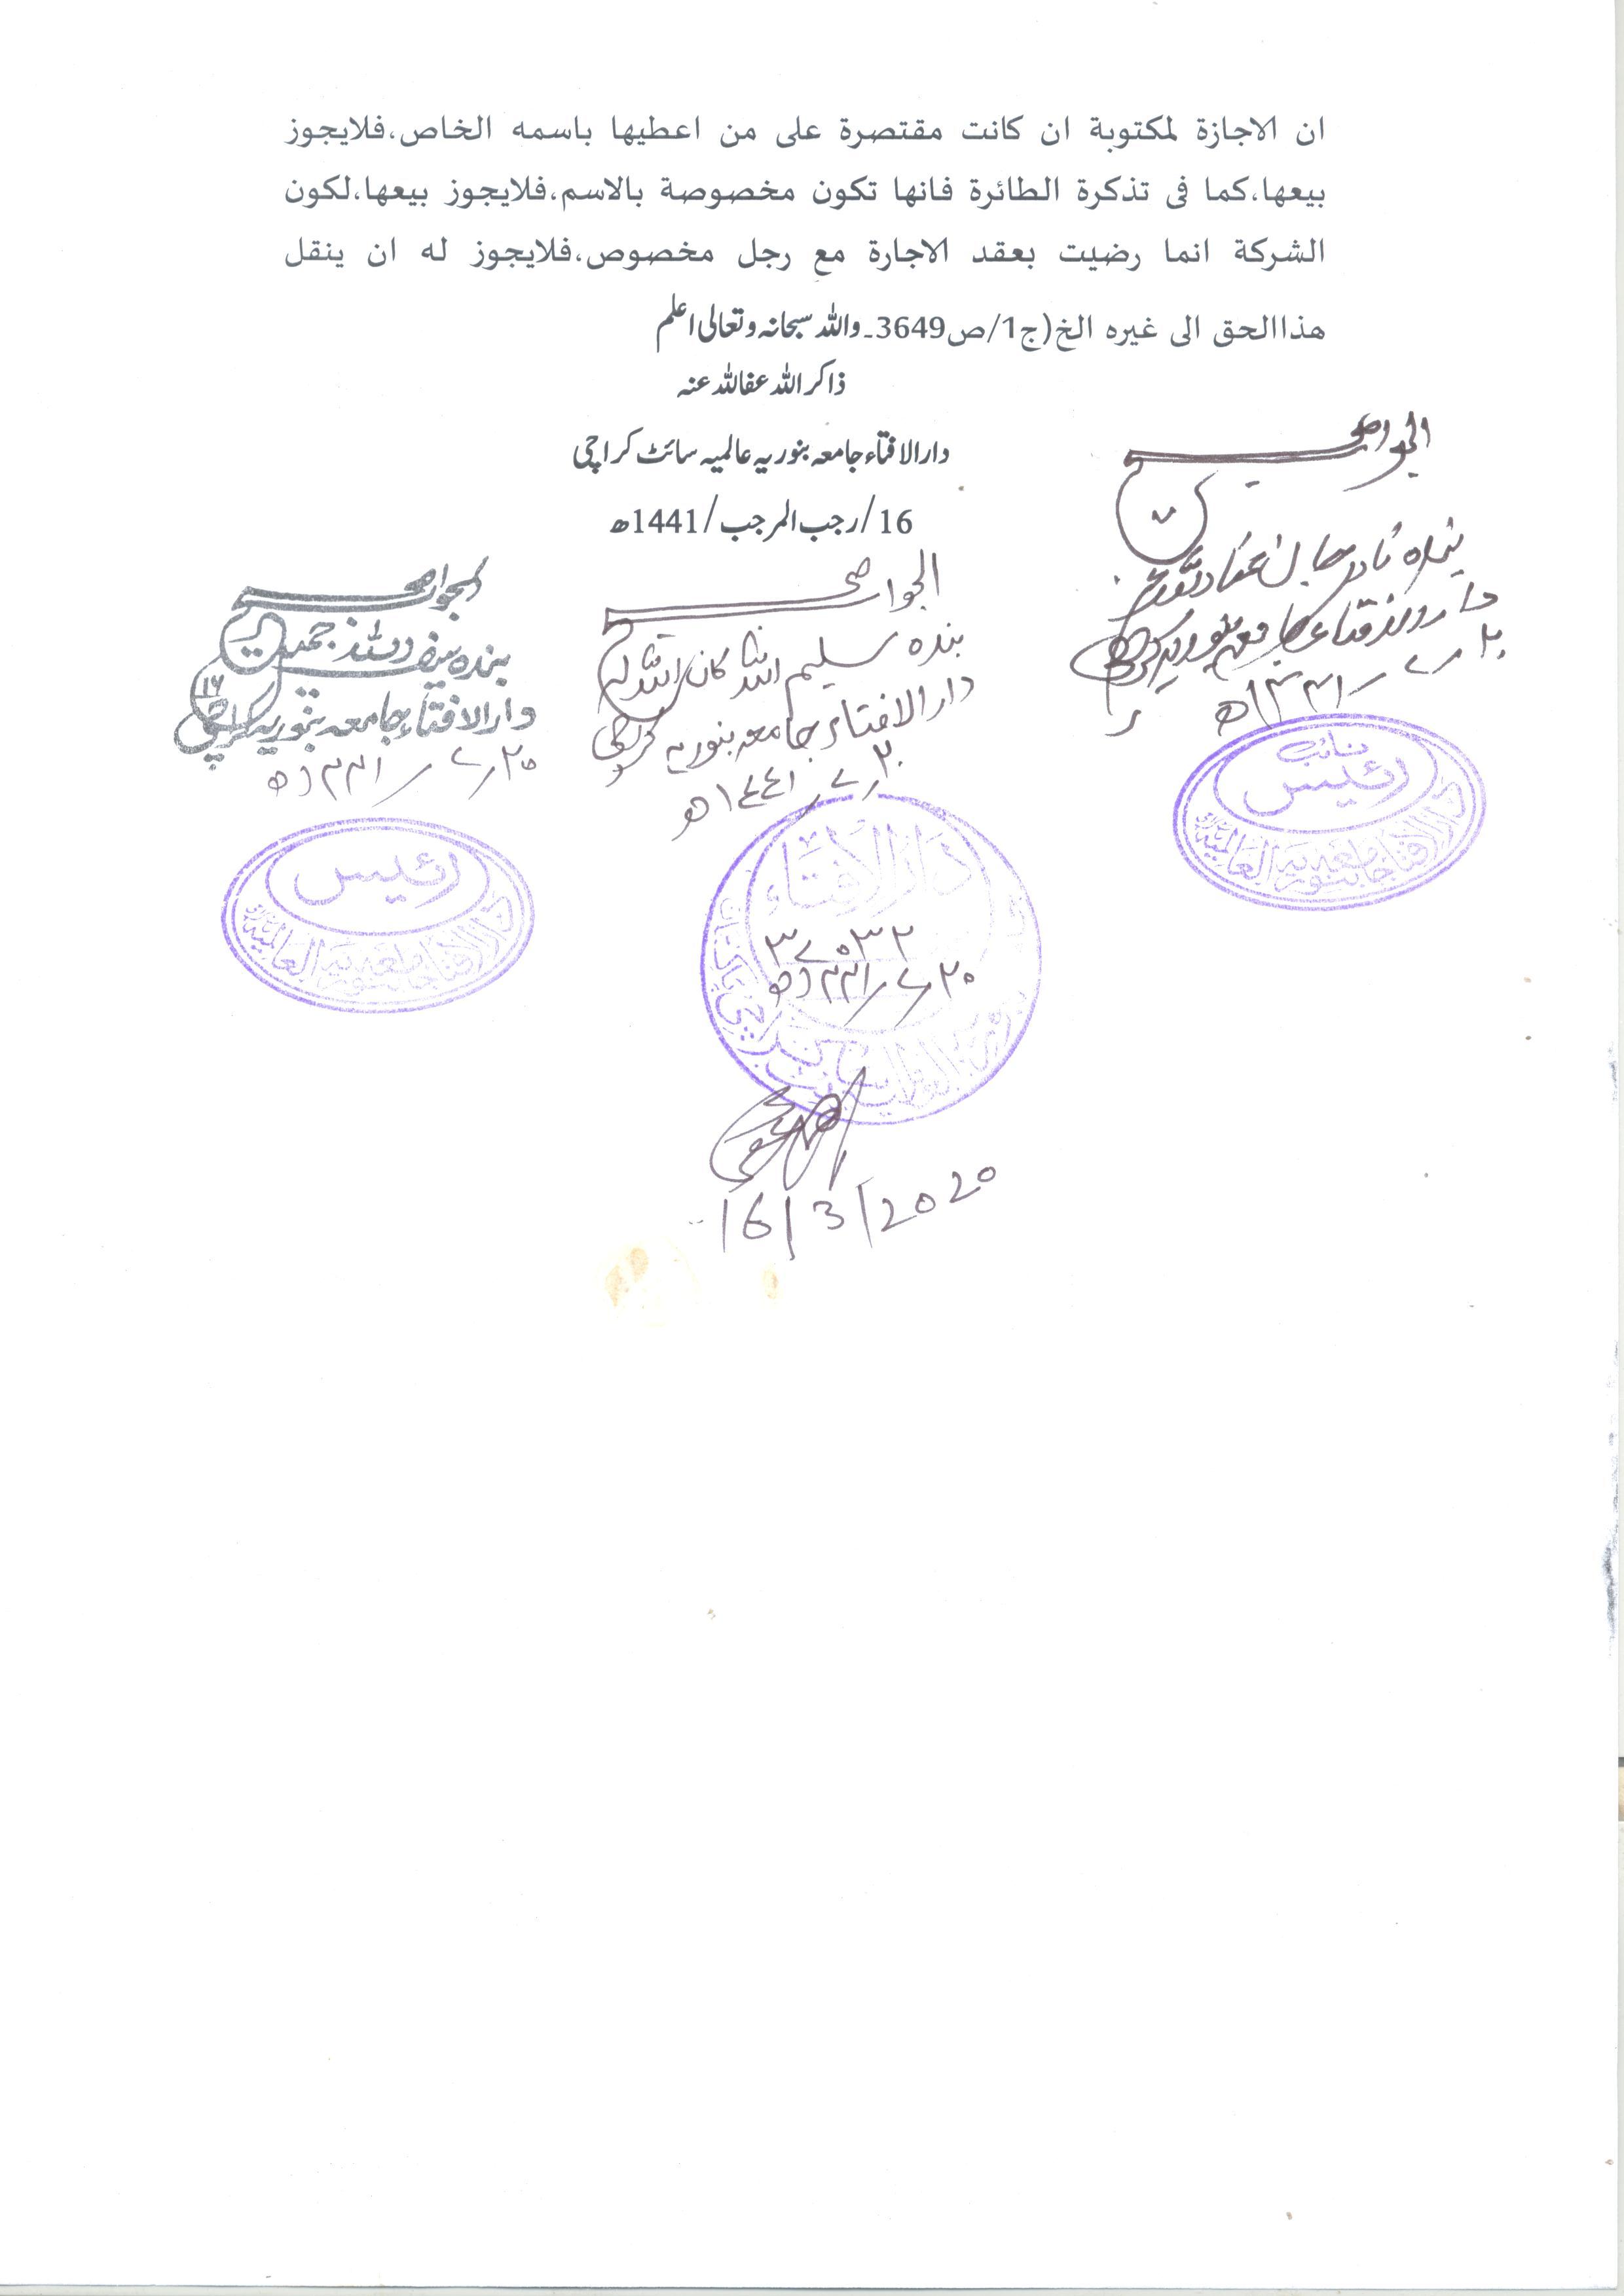 ان الاجازة لمكتوبة ان كانت مقتصرة على من اعطيها باسمه الخاص،فلايجوز
بيعها،كما فى تذكرة الطائرة فانها تكون مخصوصة بالاسم،فلايجوز بيعها،لكون
الشركة انما رضيت بعقد الاجارة مع رجل مخصوص،فلايجوز له ان ينقل
هذاالحق الى غيره الخ(ج1/ص3649۔واللہ سبحانہ وتعالی اعلم
ذاکراللہ عفاللہ عنہ
دارالافتاء جامعہ بنوریہ عالمیہ سائٹ کراچی
16/رجب المرجب/1441ھ
الجواب صحیح
بندہ نادر جان عفا اللہ عنہ
دارالافتاء جامعہ بنوریہ کراچی
۲۰؍۷؍۱۴۴۱ھ
نائب
رئیس
دارالافتاء جامعہ بنوریہ العالمیہ
الجواب صحیح
بندہ سلیم اللہ کان اللہ لہ
دارالافتاء جامعہ بنوریہ کراچی
۲۰؍۷؍۱٤٤۱ھ
دارالافتاء
۳۷۰۳۲
۲۰؍۷؍۱۴۴۱ھ
16/3/2020
الجواب صحیح
بندہ سیف اللہ جمیل
دارالافتاء جامعہ بنوریہ کراچی ۱۶
۲۰؍۷؍۱۴۴۱ھ
رئیس
دارالافتاء جامعہ بنوریہ العالمیہ